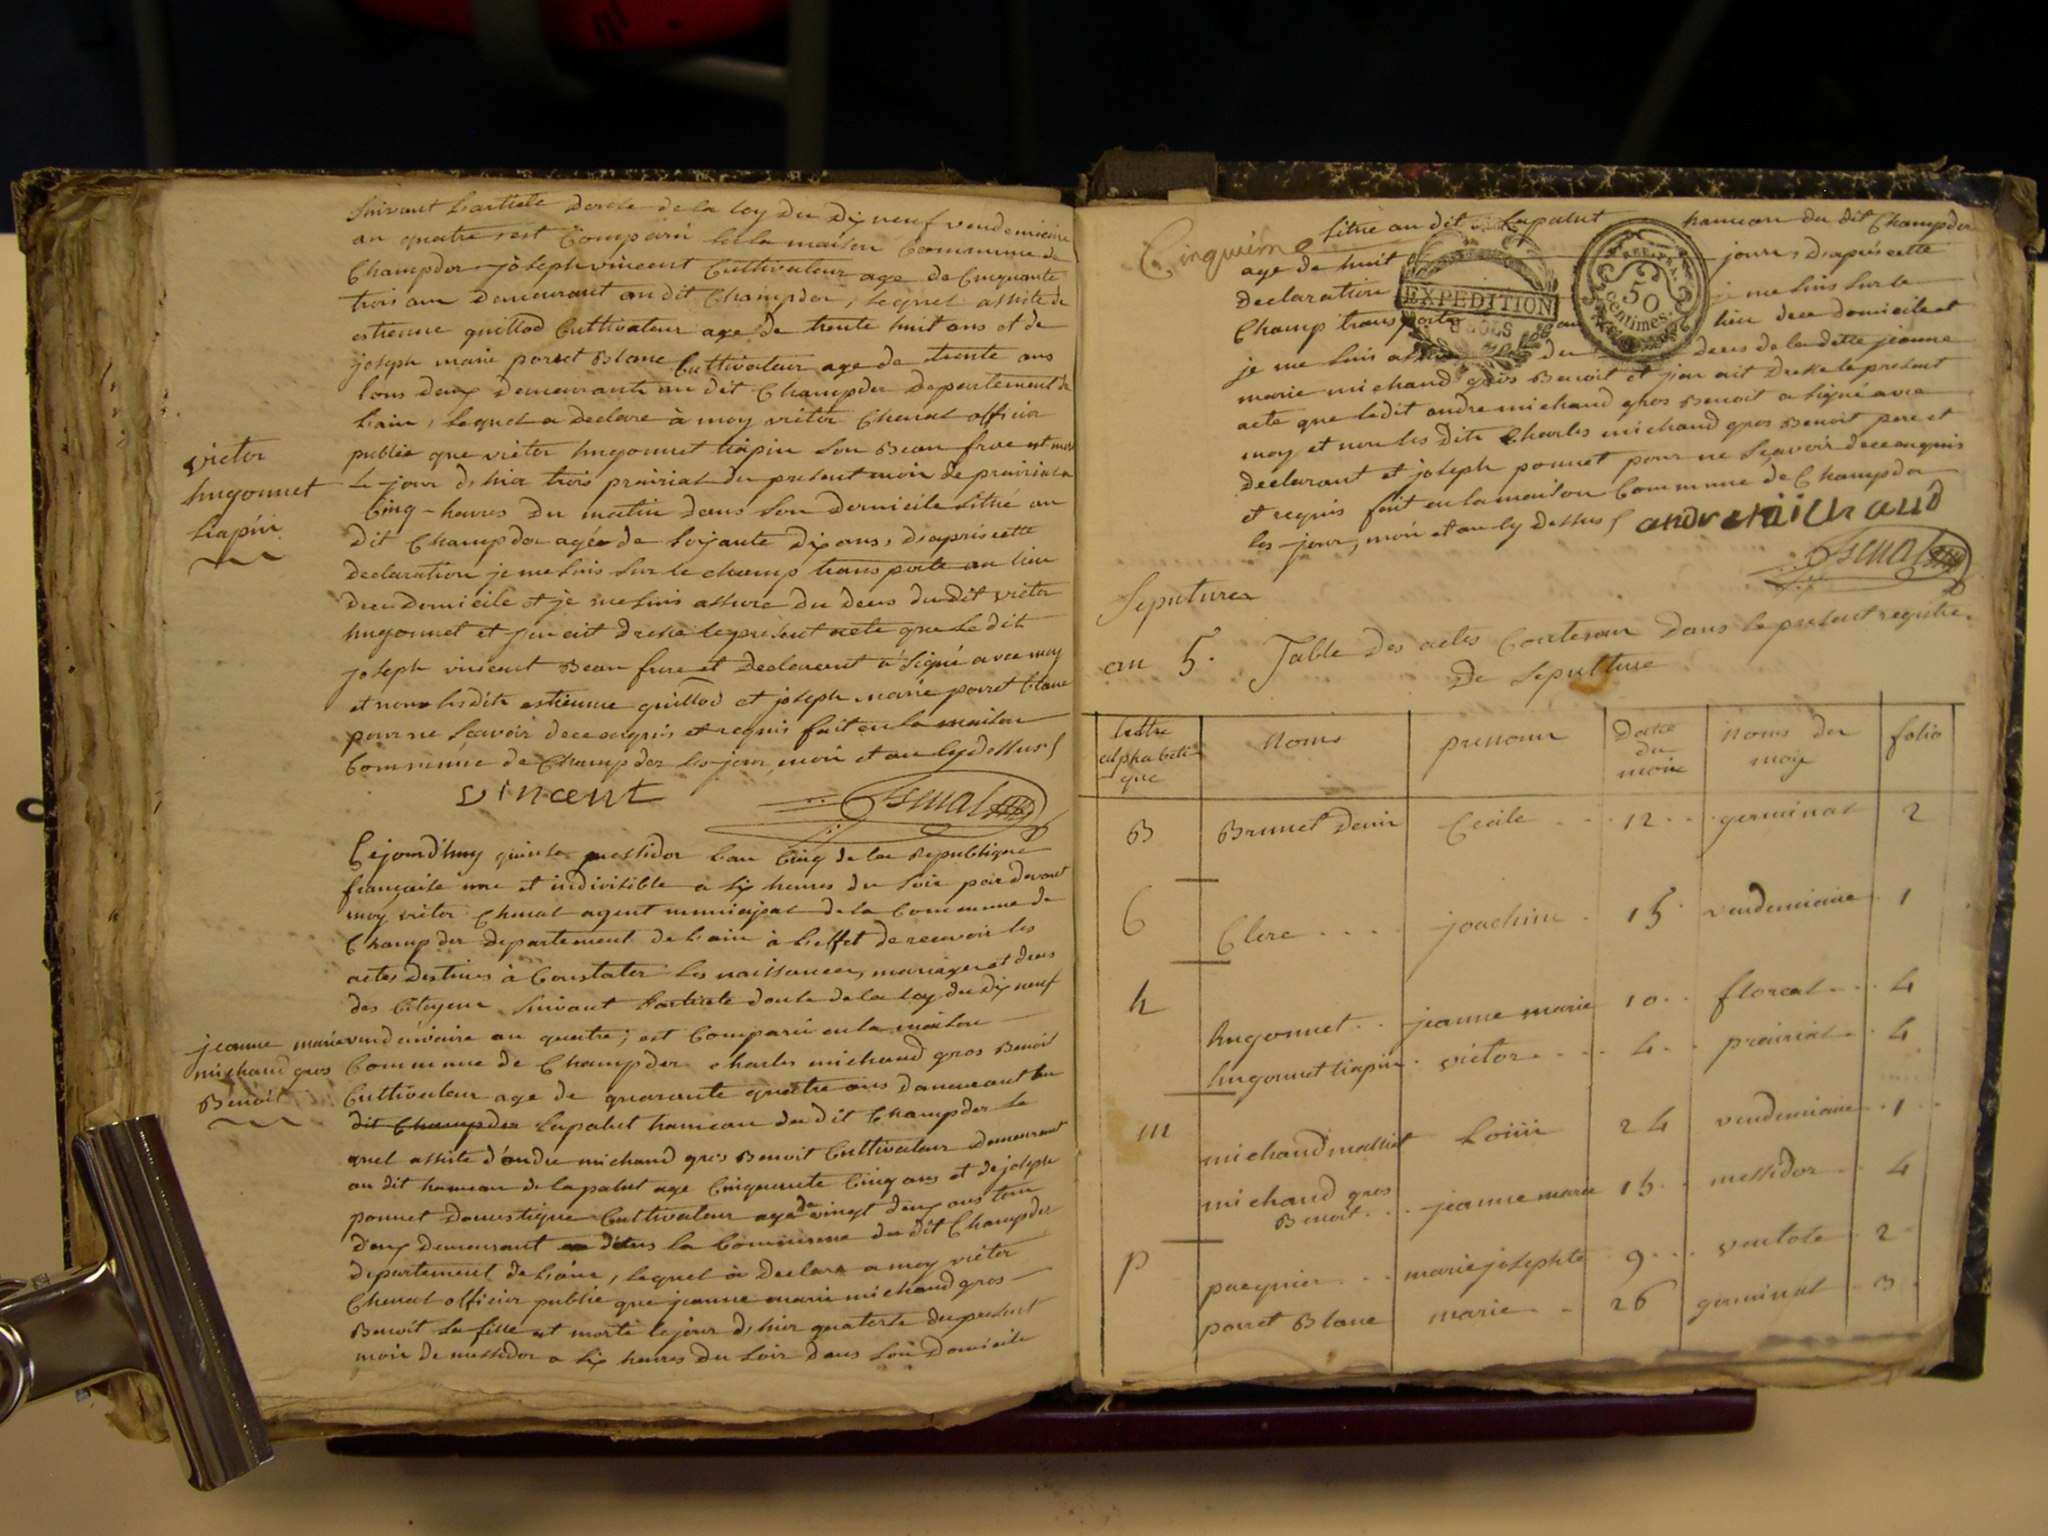 suivant l'article douze de la loy du dix neuf vendemiaire
an quatre, est Comparû la maison Commune de
Champdor joseph vincent Cultivateur age de Cinquante
trois ans demeurant au dit Champdor, lequel assiste de
estienne guillod Cultivateur age de trente huit ans et de
joseph marie porret Blanc Cultivateur age de trente ans
tous deux demeurants au dit Champdor departement de
L'ain, lequel a declare à moy victor Chenal officier
public que victor hugonnet tiapin son Beau frere est mort
Le jour d'hier trois prairial du present mois de prairial a
Cinq heures du matin dans son domicile situé au
dit Champdor agée de soixante dix ans, d'après cette
declaration je me suis sur le champ transporte au lieu
de ce domicile et je me suis assure du deces du dit victor
hugonnet et j'en ait dressé le présent acte que le dit
joseph vincent Beau frere et declarant à signé avec moy
et non lesdits estienne guillod et joseph marie porret Blanc
pour ne sçavoir de ce enquis et requis fait en la maison
Commune de Champdor les jour, mois et an cy dessus
vincent
Chenal
victor
hugonnet
tiapin
Cejourd'huy quinze messidor l'an Cinq de la Republique
française une et indivisible a six heures du soir par devant
moy victor Chenal agent municipal de la Commune de
Champdor departement de L'ain à L'effet de recevoir les
actes destines à Constater les naissances, mariages et deces
des Citoyens suivant l'article douze de la loy du dix neuf
vendémiaire an quatre, est Comparû en la maison
Commune de Champdor charles michaud gros Benoit
Cultivateur age de quarante quatre ans demeurant au
dit Champdor Lapalut hameau du dit Champdor le
quel assiste d'andre michaud gros Benoit Cultivateur demeurant
au dit hameau de lapalut age Cinquante Cinq ans et de joseph
ponnet domestique Cultivateur age de vingt deux ans tous
deux demeurant dans la Commune du dit Champdor
departement de L'ain, lequel à declare a moy victor
Chenal officier public que jeanne marie michaud gros
Benoit sa fille est morte le jour d'hier quatorze du present
mois de messidor a six heures du soir dans son domicile
jeanne marie
michaud gros
Benoit
Cinquieme
situé au dit Lapalut hameau du dit Champdor
age de huit jours, d'après cette
declaration je me suis sur le
Champ transporte au lieu de ce domicile et
je me suis du deces de la dette jeanne
marie michaud gros Benoit et j'en ait dressé le present
acte que ledit andre michaud gros Benoit a signé avec
moy et non les dits Charles michaud gros Benoit pere et
declarant et joseph ponnet pour ne sçavoir de ce enquis
et requis fait en la maison Commune de Champdor
les jour, mois et an cy dessus
EXPEDITION
50
Centimes.
Chenal
Sepulturer
an 5. Table des actes Contenus dans le present registre
De Sepulture
Lettre alphabetique noms prenoms Date du mois noms du moy folio
B Brunet Denis Cecile 12 germinal 2
C Clerc joachim 15 vendemiaire 1
h hugonnet jeanne marie 10 floreal 4
hugonnet tiapin victor 4 prairial 4
m michaud 24 vendemiaire 1
michaud gros Benoit jeanne marie 15 messidor 4
p marie josephte 9 ventose 2
porret Blanc marie 26 germinal 3